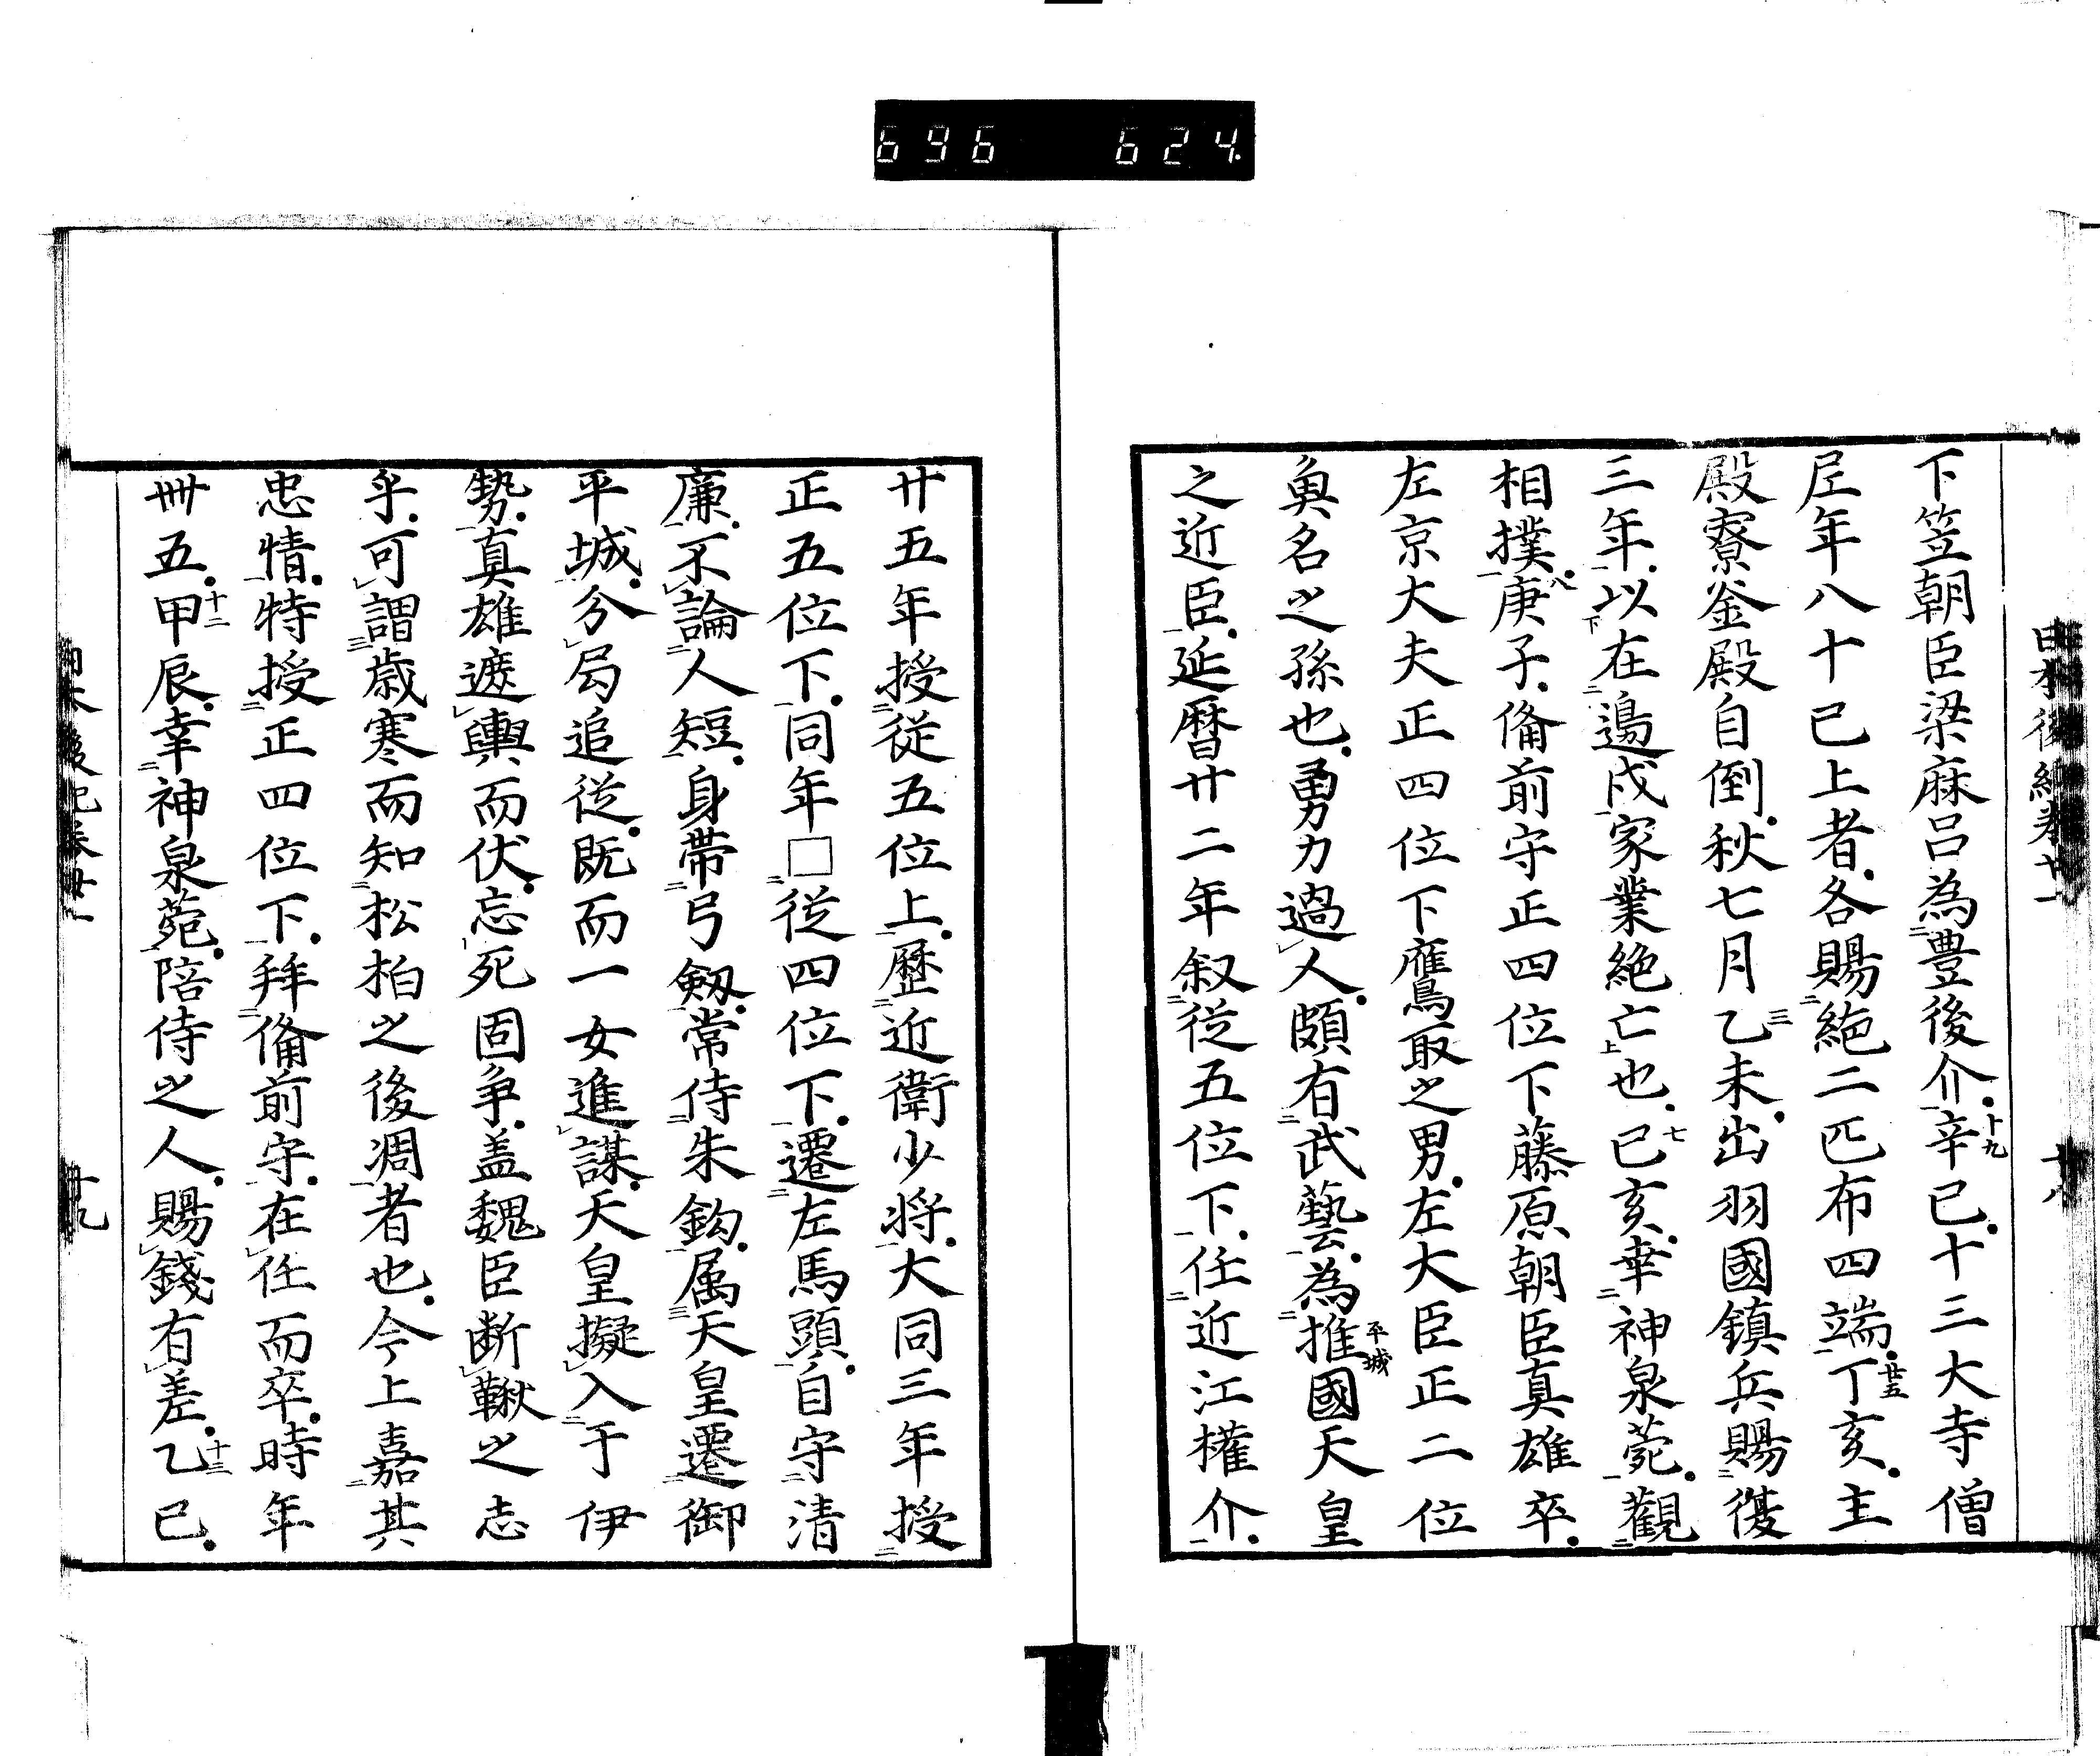 696 624.
日本後紀卷廿一 十八
下笠朝臣梁麻呂為豊後介辛巳十三大寺僧
尼年八十已上者各賜絁二匹布四端丁亥主
殿寮釜殿自倒秋七月乙未出羽國鎮兵賜復
三年以在邊戍家業絶亡也己亥幸神泉菀觀
相撲庚子備前守正四位下藤原朝臣真雄卒
左京大夫正四位下鷹取之男左大臣正二位
魚名之孫也勇力過人頗有武藝為推國天皇
之近臣延暦廿二年叙従五位下任近江權介
廿五年授従五位上歴近衛少将大同三年授
正五位下同年□従四位下遷左馬頭自守清
廉不論人短身帶弓劔常侍朱鈎属天皇遷御
平城分局追従既而一女進謀天皇擬入于伊
勢真雄遮輿而伏忘死固争盖魏臣断鞦之志
乎可謂歳寒而知松柏之後凋者也今上嘉其
忠情特授正四位下拜備前守在任而卒時年
卌五甲辰幸神泉菀陪侍之人賜錢有差乙巳
日本後紀卷廿一 十九